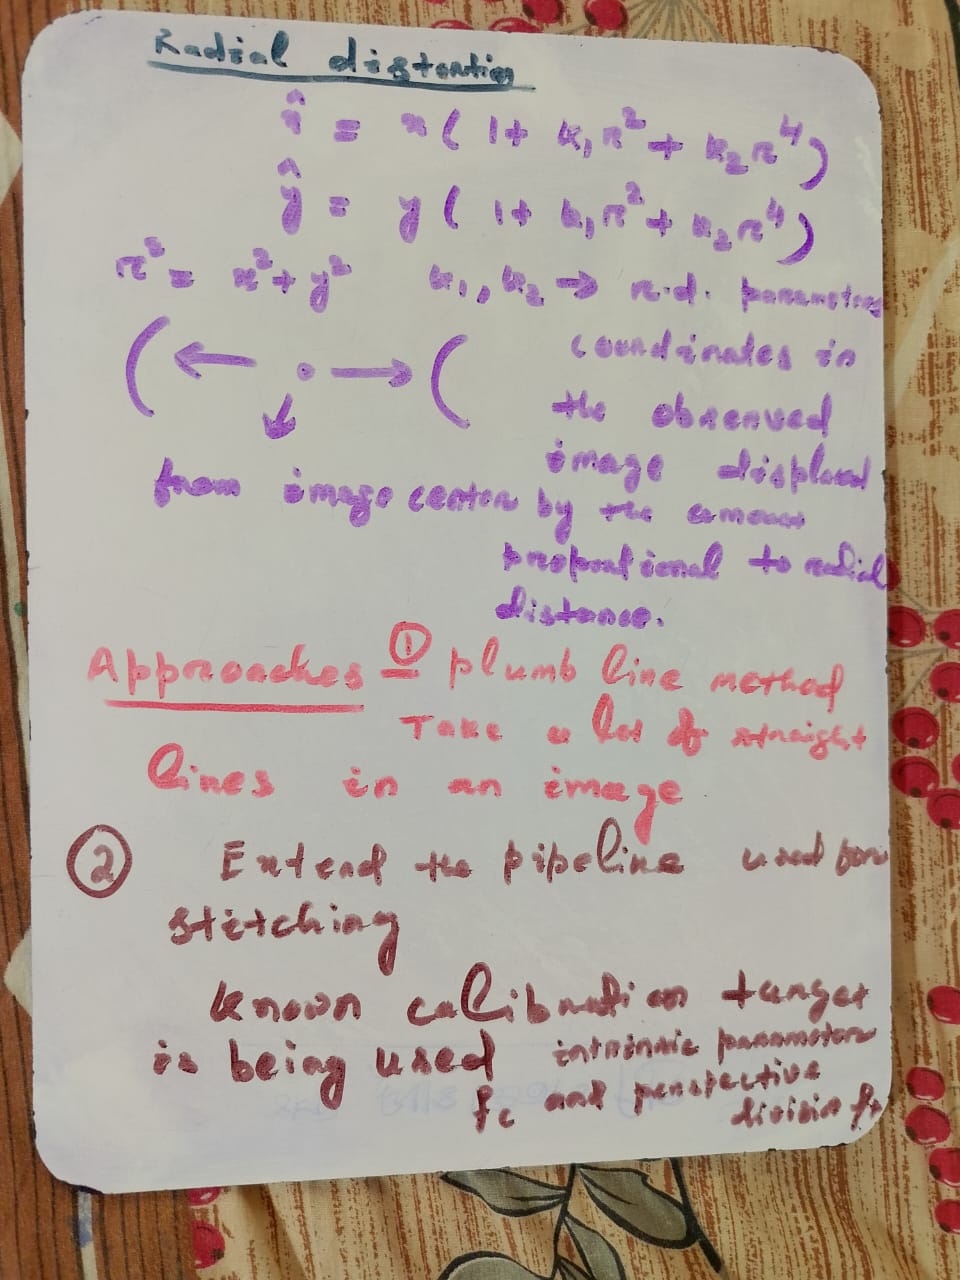 Radial distortion
x̂ = x ( 1 + k₁ r² + k₂ r⁴ )
ŷ = y ( 1 + k₁ r² + k₂ r⁴ )
r² = x² + y² k₁, k₂ → r.d. parameters
coordinates in
the observed
image displaced
from image center by the amount
proportional to radial
distance.
Approaches ① plumb line method
Take a lot of straight
lines in an image
② Extend the pipeline used for
stitching
known calibration target
is being used intrinsic parameters
fc and perspective
division